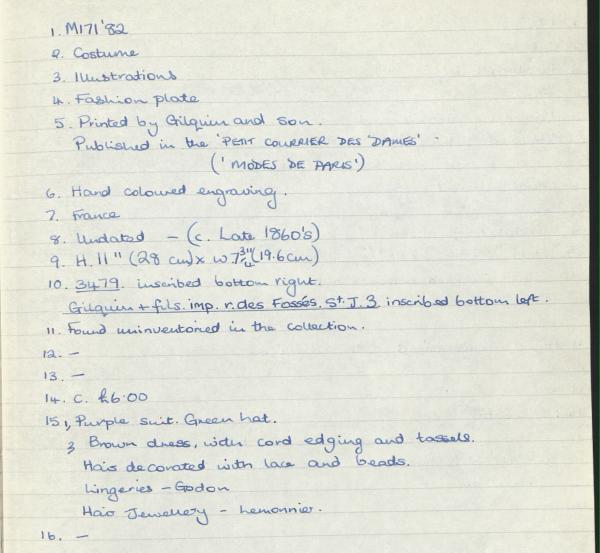 1. M171'82
2. Costume
3. Illustrations
4. Fashion plate
5. Printed by Gilquin and Son.
Published in the 'PETIT COURRIER DES DAMES'.
('MODES DE PARIS')
6. Hand coloured engraving.
7. France
8. Undated - (c. Late 1860's)
9. H. 11" (28 cm) x W 7 3/4" (19.6cm)
10. 3479. inscribed bottom right.
Gilquin + fils. imp. r. des Fossés. St. J. 3 inscribed bottom left.
11. Found uninventoried in the collection.
12. -
13. -
14. C. £6.00
15 1, Purple suit. Green hat.
Brown dress, with cord edging and tassels.
Hair decorated with lace and beads.
Lingeries - Godon
Hair Jewellery - Lemonnier.
16. -